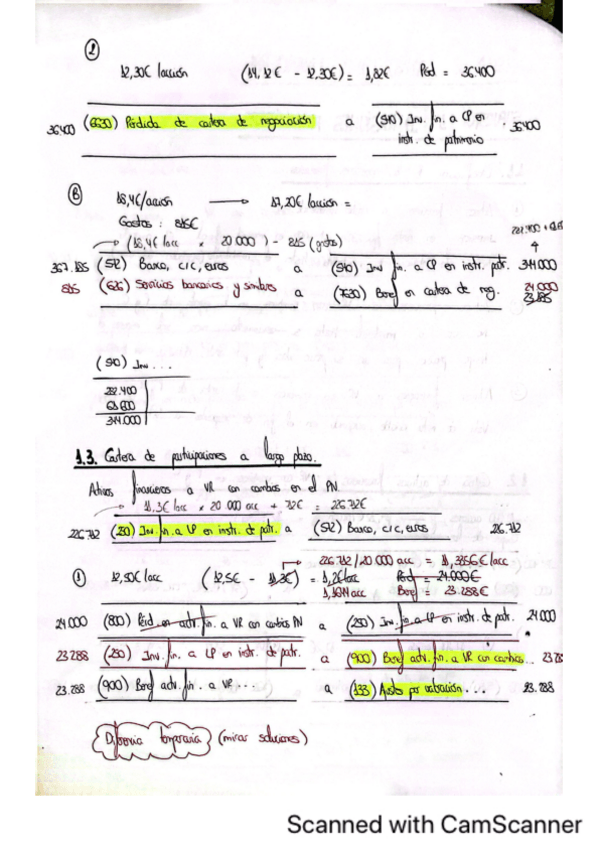 ②
12,30€ /acción (14,12€ - 12,30€) = 1,82€ Pérd = 36400
36400 (6630) Pérdida de cartera de negociación a (540) Inv. fin. a CP en instr. de patrimonio 36400
③
18,4€/acción → 17,20€ /acción =
Gastos: 815€
(18,4€ /acc × 20 000) - 815 (gastos)
367.185 (572) Banco, c/c, euros a (540) Inv fin. a CP en instr. patr. 344.000
815 (626) Servicios bancarios y similares a (7630) Benef en cartera de neg. 24.000
23.185
(540) Inv...
282.400
61.600
344.000
1.3. Cartera de participaciones a largo plazo.
Activos financieros a VR con cambios en el PN
11,3€ /acc × 20 000 acc + 712€ = 226.712€
226.712 (250) Inv. fin. a LP en instr. de patr. a (572) Banco, c/c, euros 226.712
226.712/20.000 acc = 11,3356€/acc
① 12,50€/acc (12,5€ - 11,3€) = 1,2€/acc Pérd = 24.000€
1,1644acc Benef = 23.288€
24.000 (800) Pérd. en activ. fin. a VR con cambios PN a (250) Inv. fin. a LP en instr. de patr. 24.000
23.288 (250) Inv. fin. a LP en instr. de patr. a (900) Benef activ. fin. a VR con cambios...
23.288 (900) Benef activ. fin. a VR... a (133) Ajustes por valoración... 23.288
Diferencia temporaria (mirar soluciones)
Scanned with CamScanner